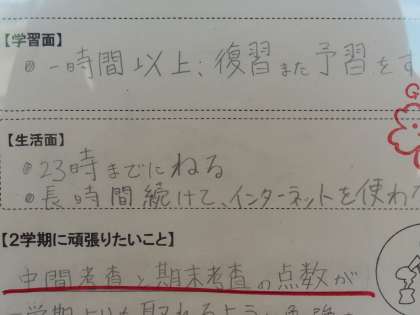 【学習面】
• 一時間以上、復習また予習をす
【生活面】
• 23時までにねる
• 長時間続けて、インターネットを使わ
【2学期に頑張りたいこと】
中間考査と期末考査の点数が